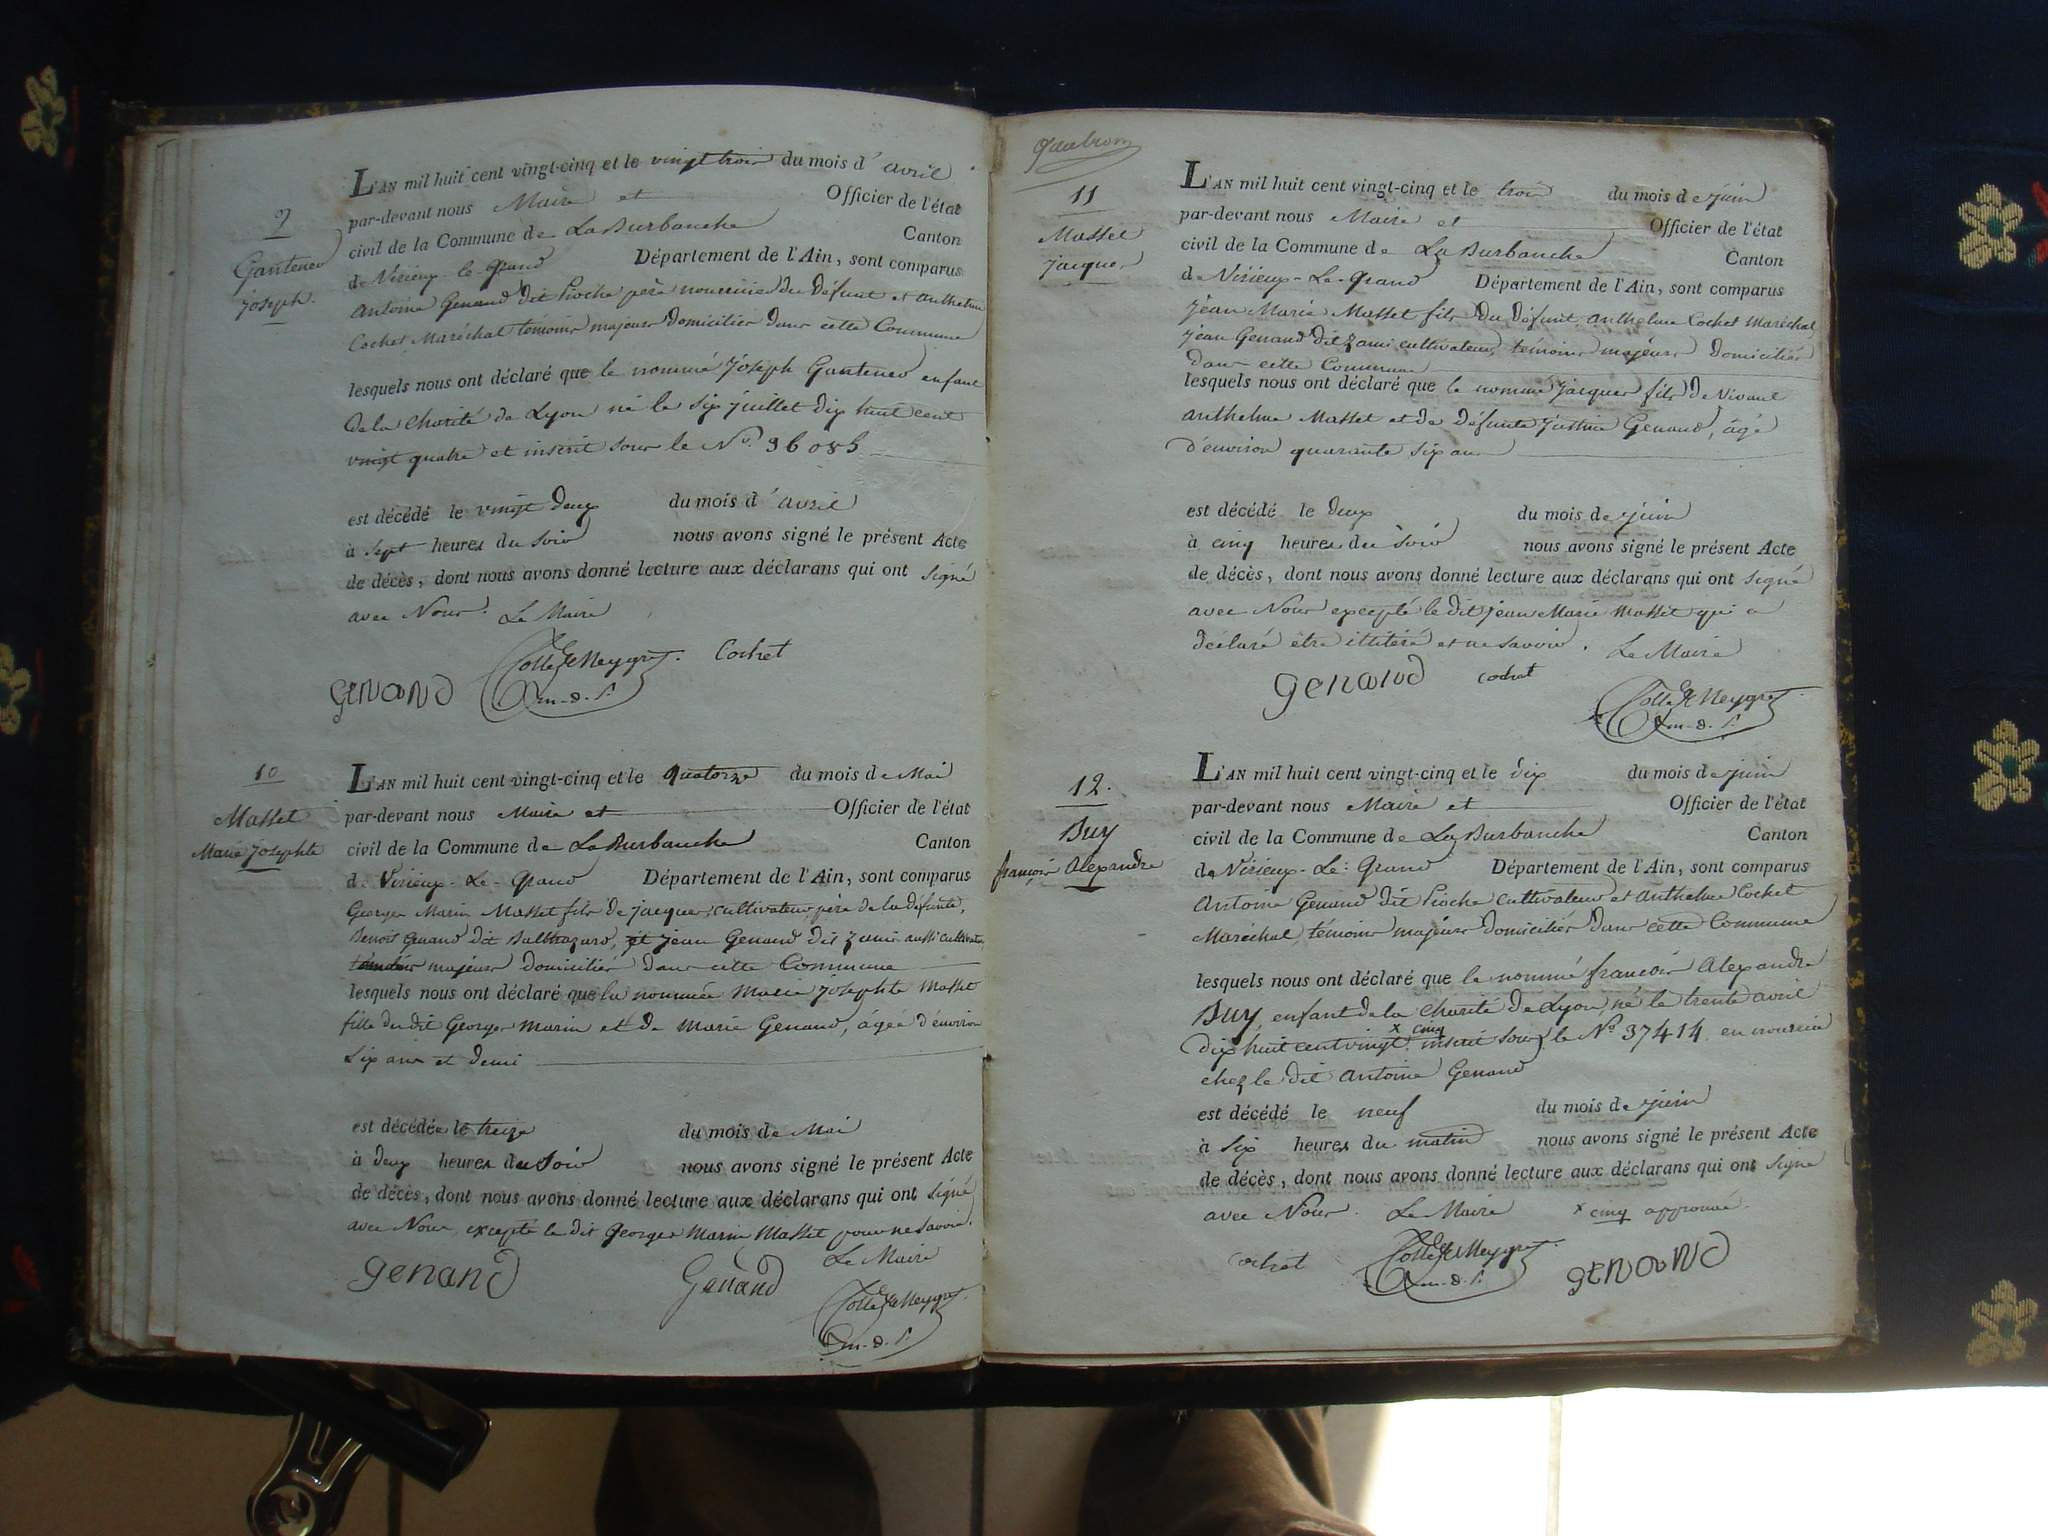 9
Ganteneo
Joseph.
L'AN mil huit cent vingt-cinq et le vingt trois du mois d'avril
par-devant nous Maire et Officier de l'état
civil de la Commune de La Burbanche Canton
de Virieux-le-Grand Département de l'Ain, sont comparus
Antoine Genand dit Pioche père nourricier du défunt et Anthelme
Cochet Maréchal témoins majeurs domiciliés dans cette Commune
lesquels nous ont déclaré que le nommé Joseph Ganteneo enfant
de la Charité de Lyon né le six juillet dix huit cent
vingt quatre et inscrit sous le No. 36085
est décédé le vingt deux du mois d'avril
à sept heures du soir nous avons signé le présent Acte
de décès, dont nous avons donné lecture aux déclarans qui ont signé
avec Nous. Le Maire
Genand Cochet
10
Masset
Marie Josephte
L'AN mil huit cent vingt-cinq et le quatorze du mois de Mai
par-devant nous Maire et Officier de l'état
civil de la Commune de La Burbanche Canton
de Virieux-Le-Grand Département de l'Ain, sont comparus
Georges Marin Masset fils de jacques, cultivateur père de la défunte,
Benoit Genand dit Balthazard, et jean Genand dit zami aussi cultivateur,
témoins majeurs domiciliés dans cette Commune
lesquels nous ont déclaré que la nommée Marie Josephte Masset
fille du dit Georges Marin et de Marie Genand, âgée d'environ
six ans et demi
est décédée le treize du mois de Mai
à deux heures du soir nous avons signé le présent Acte
de décès, dont nous avons donné lecture aux déclarans qui ont signé
avec Nous, excepté le dit Georges Marin Masset pour ne savoir.
Le Maire
Genand Genand
11
Masset
jacques
L'AN mil huit cent vingt-cinq et le trois du mois de juin
par-devant nous Maire et Officier de l'état
civil de la Commune de La Burbanche Canton
de Virieux-Le-Grand Département de l'Ain, sont comparus
jean Marie Masset fils du défunt, anthelme Cochet Maréchal,
jean Genand dit zami cultivateur, témoins majeurs domiciliés
dans cette Commune
lesquels nous ont déclaré que le nommé jacques fils de vivant
anthelme Masset et de défunte justine Genand, âgé
d'environ quarante six ans
est décédé le deux du mois de juin
à cinq heures du soir nous avons signé le présent Acte
de décès, dont nous avons donné lecture aux déclarans qui ont signé
avec Nous excepté le dit jean Marie Masset qui a
déclaré être illitéré et ne savoir. Le Maire
Genand Cochet
12.
Buy
françois Alexandre
L'AN mil huit cent vingt-cinq et le dix du mois de juin
par-devant nous Maire et Officier de l'état
civil de la Commune de La Burbanche Canton
de Virieux-Le-Grand Département de l'Ain, sont comparus
Antoine Genand dit Pioche cultivateur et Anthelme Cochet
Maréchal, témoins majeurs domiciliés dans cette Commune
lesquels nous ont déclaré que le nommé françois Alexandre
Buy, enfant de la Charité de Lyon, né le trente avril
x cinq
dix huit cent vingt x inscrit sous le No 37414 en nourrice
chez le dit Antoine Genand
est décédé le neuf du mois de juin
à six heures du matin nous avons signé le présent Acte
de décès, dont nous avons donné lecture aux déclarans qui ont signé
avec Nous. Le Maire x cinq approuvé.
Cochet Genand